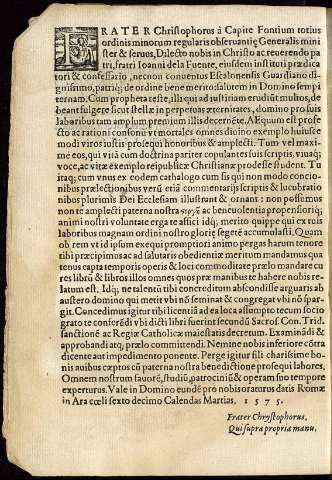 FRATER Christophorus à Capite Fontium totius
ordinis minorum regularis obseruantię Generalis mini
ster & seruus, Dilecto nobis in Christo ac reuerendo pa
tri, fratri Ioanni dela Fuente, eiusdem instituti prædica
tori & confessario, necnon conuentus Escalonensis Guardiano di
gnissimo, patriq; de ordine bene merito: salutem in Domino sempi
ternam. Cum propheta teste, illi qui ad iustitiam erudiūt multos, de
beant fulgere sicut stellæ in perpetuas æternitates, domino pro suis
laboribus tam amplum premium illis decernēte. Aequum est profe
cto ac rationi consonū vt mortales omnes diuino exemplo huiusce
modi viros iustis prosequi honoribus & amplecti. Tum vel maxi
me eos, qui vita cum doctrina pariter copulantes suis scriptis, viuaq;
voce, ac vitæ exemplo reipublicæ Christianæ prodesse student. Tu
itaq; cum vnus ex eodem cathalogo cum sis qui non modo concio-
nibus prælectionibus verū eriā commentarijs scriptis & lucubratio
nibus plurimis Dei Ecclesiam illustrant & ornant: non possumus
non te amplecti paterna nostra ac beneuolentia propensiori;
animi nostri voluntate erga te affici idq; merito quippe qui ex tuis
laboribus magnam ordini nostro glorię segetē accumulasti. Quam
ob rem vt id ipsum exequi promptiori animo pergas harum tenore
tibi præcipimus ac ad salutaris obedientiæ meritum mandamus qua
tenus capta temporis operis & loci commoditate prælo mandare cu
res librū & libros illos omnes quos præ manibus te habere nobis re-
latum est. Idq; ne talentū tibi creditum abscondisse arguaris ab
austero domino qui metit vbi nō seminat & congregat vbi nō spar-
git. Concedimus igitur tibi licentiā ad ea loca assumpto tecum socio
grato te conferēdi vbi dicti libri fuerint secundū Sacros. Con. Trid.
sanctionē ac Regiæ Catholicæ maiestatis decretum. Examinādi &
approbandi atq; prælo committendi. Nemine nobis inferiore cōtra
dicente aut impedimento ponente. Perge igitur fili charissime bo-
nis auibus cæptos cū paterna nostra benedictione prosequi labores.
Omnem nostrum fauorē, studiū, patrociniū & operam suo tempore
experturus. Vale in Domino eundē pro nobis oraturus datis Romæ
in Ara cœli sexto decimo Calendas Martias. 1575.
Frater Chrystophorus,
Qui supra propria manu.